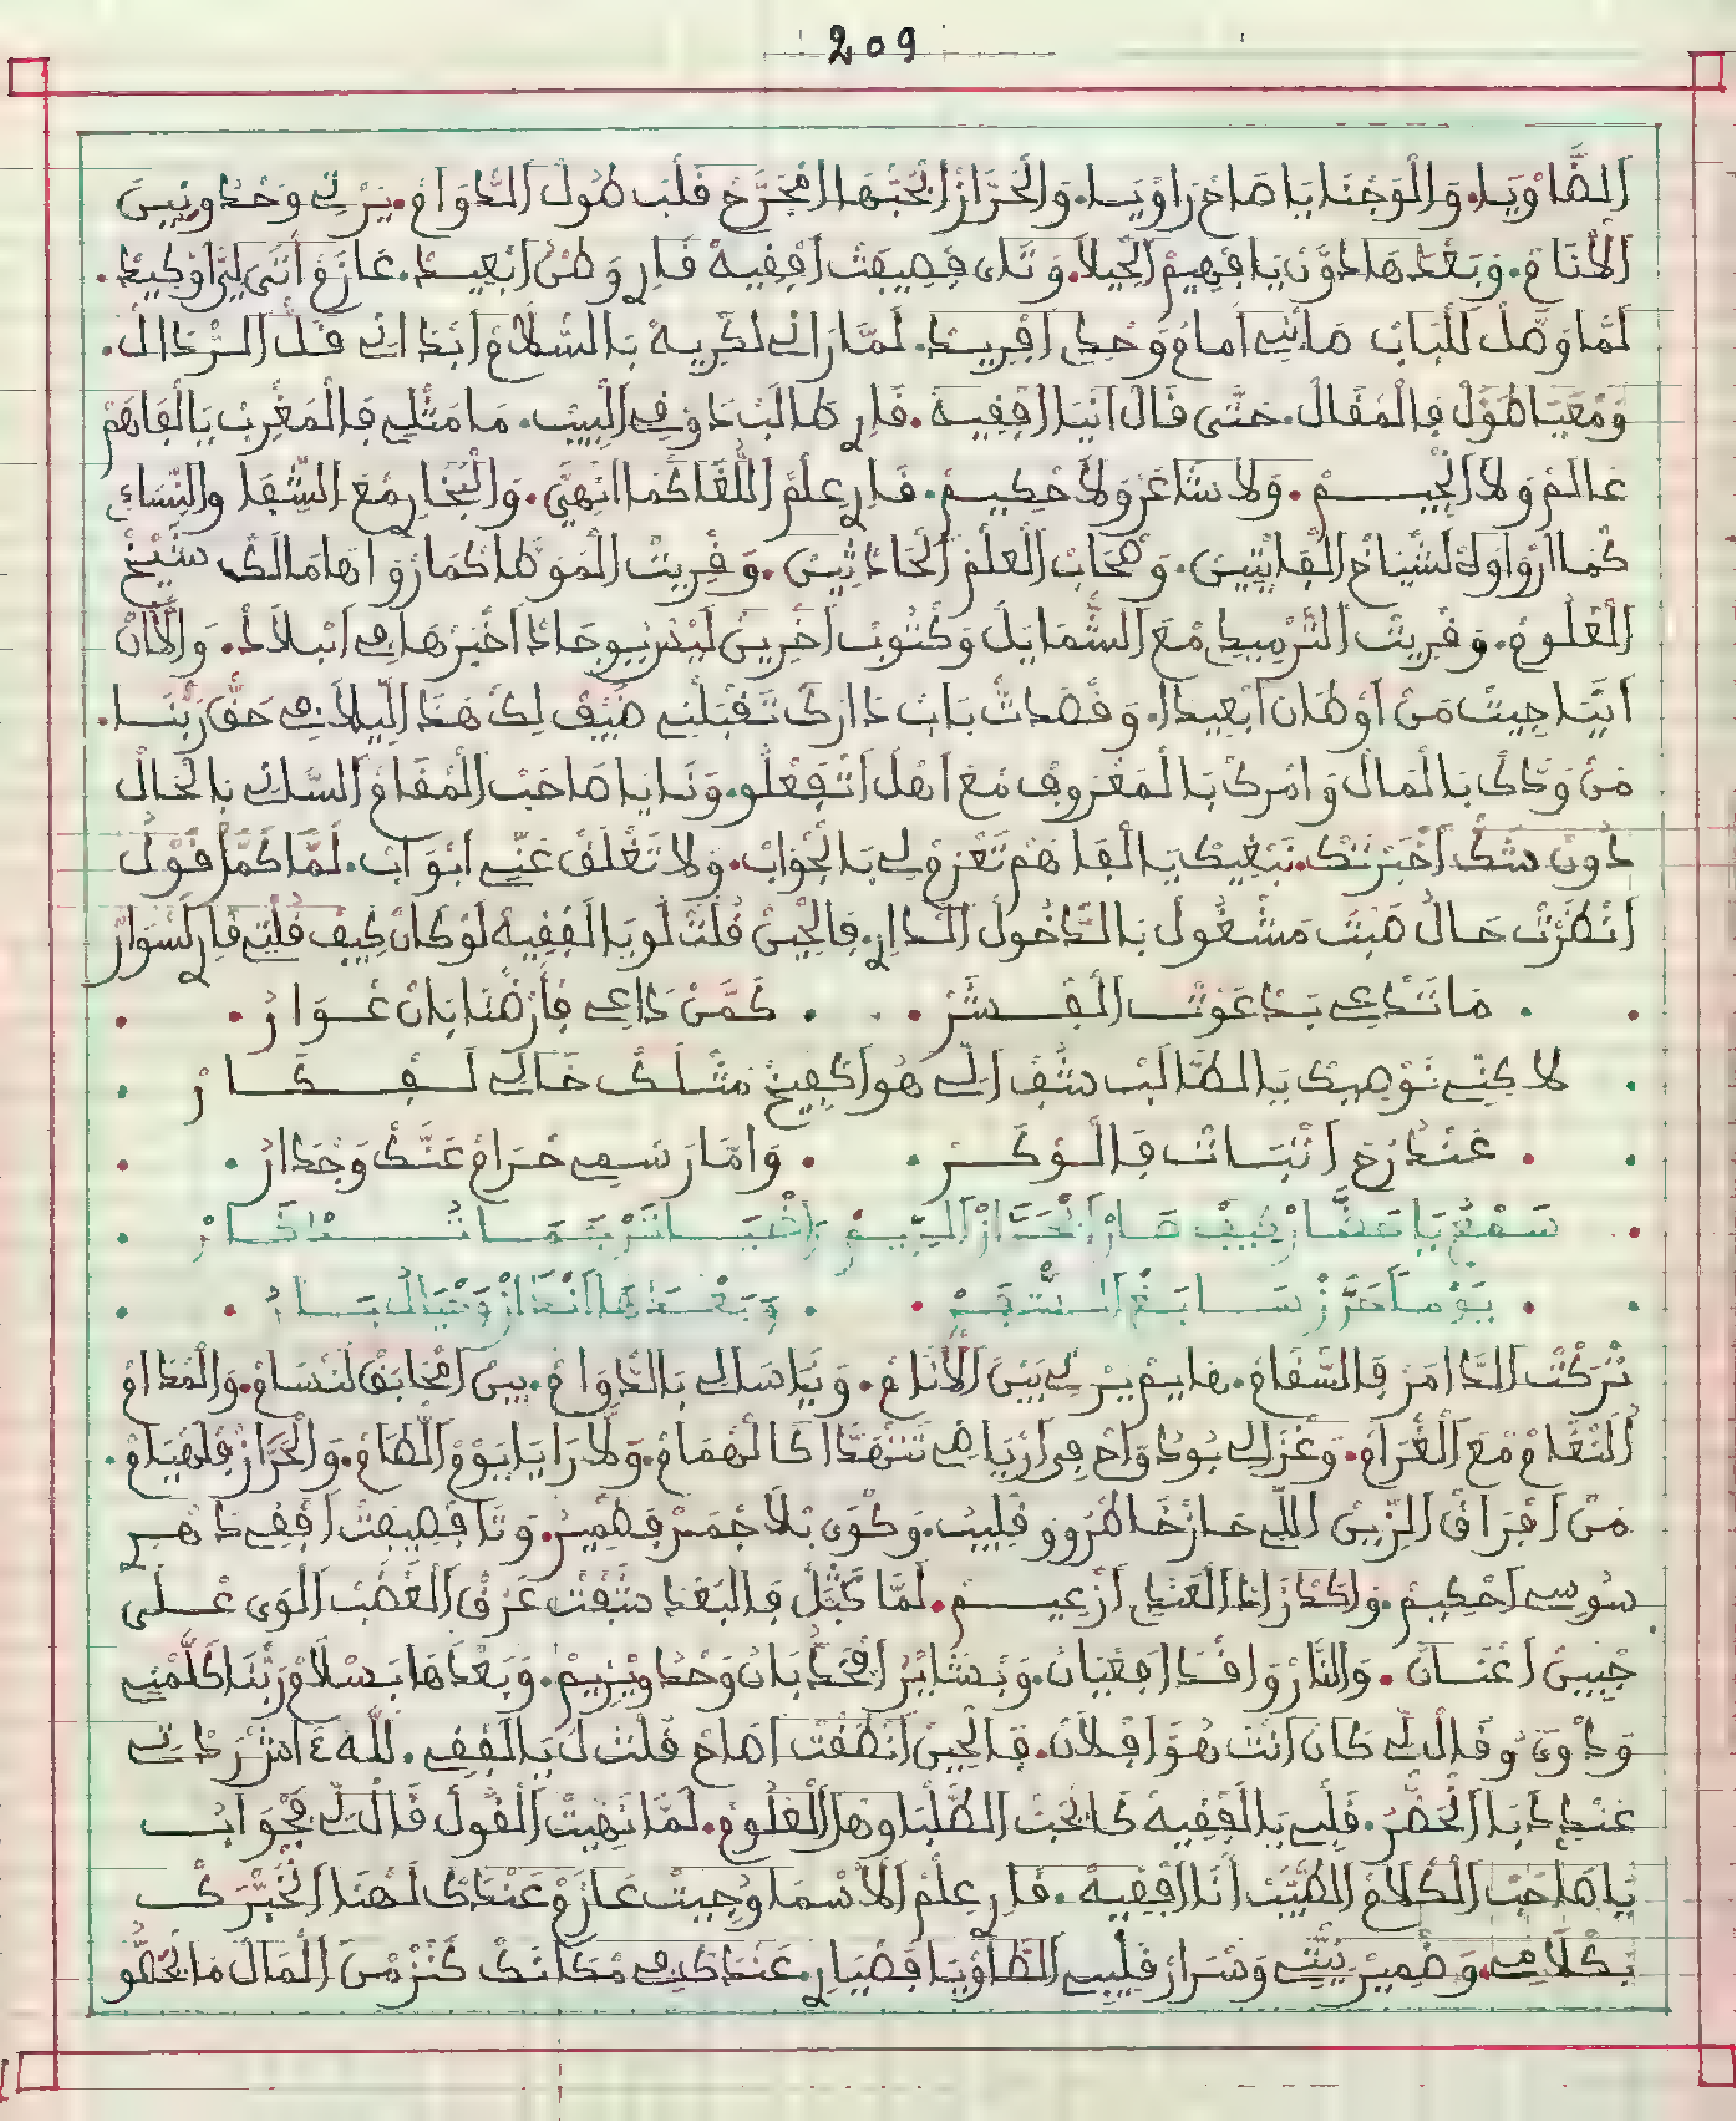 209
الضَّاوْيَا. وَالْوَجْنَا يَا صَاحْ رَاوْيَا. وَالْحَرَّازْ الْحَبْهَا امْجَرَّحْ قَلْبُ طُولْ الدّْوَامْ. يَرْلِي وَحْدُ وبِينْ
الْأَنَامْ. وَبَعْدْهَا دَوَّنْ يَا فْهِيمْ الْحِيلَا. وَتَانِي قْصِيفَتْ افْقِيهْ قَارِي وَطْنُ ابْعِيدْ. عَازَمْ أَنَّى لِيَّ اوْكِيدْ.
لَمَّا وَصَلْ لَلْبَابْ صَابْنِي امَامُ وَحْدِي افْرِيدْ. لَمَّا رَانِي لَكْرِيهْ بَالسّْلَامْ ابْدَانِي قَلْ الرّْدَالْ.
وَمْعَيَا طَوَّلْ فِالْمَقَالْ. حَتَّى قَالْ أَنْيَا افْقِيهْ. قَارِي طَالَبْ دَاوْفِي الْبِيتْ. مَا مَثْلِي فِالْمَغْرِبْ يَا الْفَاهَمْ
عَالَمْ وَلَا الْجِيمْ. وَلَا شَاعَرْ وَلَا حْكِيمْ. قَارِي عِلْمْ اللّْغَا كْمَا انْهِيَّ. وَالْبُخَارِي مْعَ الشّْفَا وَالنّْسَاءِ
كْمَا ارْوَاوْلَا لَشْيَاخْ الْفَايْتِينْ. وَصْحَابْ الْعَلْمْ الْحَادْثِينْ. وَقْرِيتْ الْمُوَطَّا كْمَا رْوَاهَا مَالَكْ شِيخْ
الْعْلُومْ. وَقْرِيتْ التَّرْمِيدِي مْعَ الشّْمَايَلْ وَكْتُوبْ اخْرِينْ لَيْغَرْبُوحَادْ اخْبَرْهَا فِي ابْلَادْ. وَالْآنْ
أَنْيَا جِيتْ مَنْ اوْطَانْ ابْعِيدَا. وَقْصَدْتْ بَابْ دَارَكْ تَقْبَلْنِي ضَيْفْ لِكْ هَذَ اللَّيْلَا فِي حَقّْ رَبْنَا.
مَنْ وَدَّكْ بَالْمَالْ وَامْرَكْ بَالْمَعْرُوفْ مْعَ اهْلْ اتْفَعْلُو. وَنَايَا صَاحَبْ الْمْقَامْ السَّانِي بَالْحَالْ
دُونْ شَكّْ اخْبَرْتَكْ. نَبْغِيكْ يَا الْفَاهَمْ تَعْزَمْ لِي بَالْجْوَابْ. وَلَا تَغْلَقْ عَنِّي ابْوَابْ. لَمَّا كَمَّلْ قَوْلْ
انْظَرْتْ حَالُ صَبْتْ مَشْغُولْ بَالدّْخُولْ الدَّارْ. فَالْحِينْ قُلْتْ لُو يَا الْفْقِيهْ لَوْ كَانْ كِيفْ قُلْتِي قَارِي لَسْوَارْ
. مَا تَدْعِي بَدْعَوْتْ الْفْشَرْ . . كَمَّنْ دَاعِي فَارْضْنَا بَانْ عْوَارُ .
لَاكِنِّي نَوْصِيكْ يَا الطَّالَبْ شَفْ الِي هُوَ اكْفِيحْ مَثْلَكْ خَالِي لَفْكَارْ
. عَنْدُ رَحْ انْبَاتْ فِالْوْكَرْ . . وَامَّا رَسْمِي حْرَامْ عَنَّكْ وَجْدَارُ .
سَمْعُ يَا حَضَّارْ كِيفْ صَارْ الْحَرَّازْ الرِّيمْ بَاشْعَارْ
. يَوْمْ احْرَزْ سَابَغْ الشّْفَرْ . . وَبَعْدْهَا
تْرَكْتْ الدَّامَرْ فِالسّْقَامْ. هَايَمْ يَرْلِي بَيْنْ الْأَنَامْ. وَنَايَا سَالِي بَالدّْوَامْ. بِينْ امْحَابَقْ لَنْسَامْ. وَالْمْدَامْ
النّْغَامْ مْعَ الْغْرَامْ. وَغْزَالِي بُودْوَاحْ فِي ارْيَاضِي تَتْهَدَّا كَالْهُمَامْ. وَلَا رَا يَا يَوْمْ الظّْلَامْ. وَالْحَرَّازْ فِلَهْيَامْ.
مَنْ افْرَاقْ الزِّينْ اللِّي حَازْ خَاطْرُ وقْلِيبُ. وَكْوَى بْلَا جْمَرْ فَضْمِيرُ. وَتَا قْصِيفَتْ افْقِي دَهْرِي
سُوسِي احْكِيمْ. وَاكْدَا زَادْ الْعَنْدِي ازْعِيمْ. لَمَّا كَبَّلْ فِالْبَعْدْ شَفْتْ عَرْقْ الْغْضَبْ الْوَى عْلَى
جْبِينُ اعْنَانْ. وَالنَّارْ وَاقْدَا فَعْيَانُ. وَبْشَايَرْ الْحَدْ بَانُ وَحْدُ ويْزِيمْ. وَبَعْدْهَا بَسْلَامْ رَبْنَا كَلَّمْنِي
وَدْوِيتْ وقَالْ لِي كَانْ انْتَ هُوَ افْلَانْ. فَالْحِينْ انْطَقْتْ اصَاحْ قَلْتْ لُ يَا الْفْقِي. للَّهْ اَشْ رَدْتِي
عَنْدِي دَبَا الْحْضَرْ. قَلِّي يَا الْفْقِيهْ كَانْحَبْ الطّْلْبَا وهْلْ الْعْلُومْ. لَمَّا نْهِيتْ الْقُولْ قَالْ لِي فَجْوَابُ
يَا صَاحَبْ الْكْلَامْ الطَّيَّبْ أَنَا افْقِيهْ. قَارِي عِلْمْ الْأَسْمَا وُجِيتْ عَازَمْ عَنْدَكْ لَهْنَا الْخَبَّرَكْ
بَكْلَامِي. وَضْمِيرْ نِيّْتِي وَسْرَارْ قْلِيبِي الظَّاوْيَا فَضْيَارِ. عَنْدَكْ فِي مْكَانَكْ كَنْزْ مْنَ الْمَالْ مَا نْحَصُّو